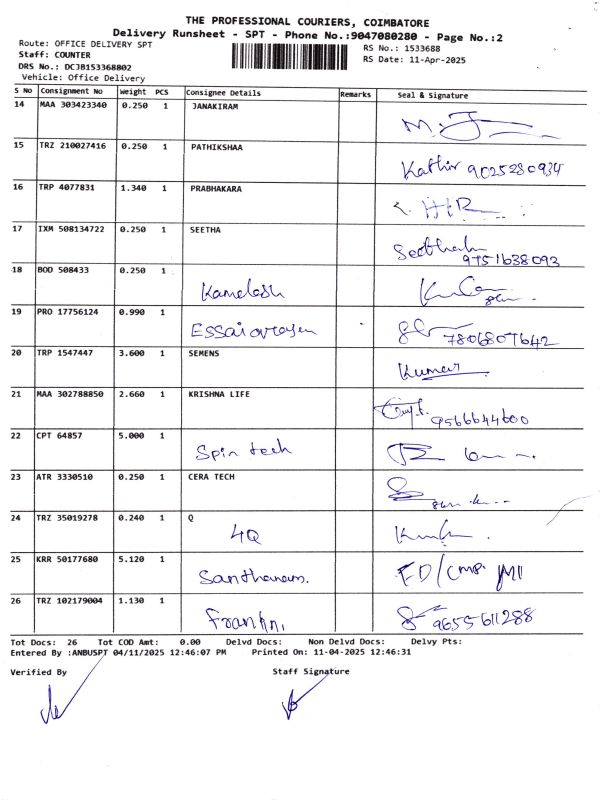 THE PROFESSIONAL COURIERS, COIMBATORE
Delivery Runsheet - SPT - Phone No.:9047080280 - Page No.:2
Route: OFFICE DELIVERY SPT RS No.: 1533688
Staff: COUNTER RS Date: 11-Apr-2025
DRS No.: DCJB153368802
Vehicle: Office Delivery
S No Consignment No Weight PCS Consignee Details Remarks Seal & Signature
14 MAA 303423340 0.250 1 JANAKIRAM
15 TRZ 210027416 0.250 1 PATHIKSHAA Kathir 9025280934
16 TRP 4077831 1.340 1 PRABHAKARA
17 IXM 508134722 0.250 1 SEETHA Seetha 9751638093
18 BOD 508433 0.250 1 Kamelash
19 PRO 17756124 0.990 1 7806807642
20 TRP 1547447 3.600 1 SEMENS Kumar
21 MAA 302788850 2.660 1 KRISHNA LIFE 9566644600
22 CPT 64857 5.000 1 Spin tech
23 ATR 3330510 0.250 1 CERA TECH
24 TRZ 35019278 0.240 1 Q 4Q
25 KRR 50177680 5.120 1 Santhanam.
26 TRZ 102179004 1.130 1 9655611288
Tot Docs: 26 Tot COD Amt: 0.00 Delvd Docs: Non Delvd Docs: Delvy Pts:
Entered By :ANBUSPT 04/11/2025 12:46:07 PM Printed On: 11-04-2025 12:46:31
Verified By Staff Signature